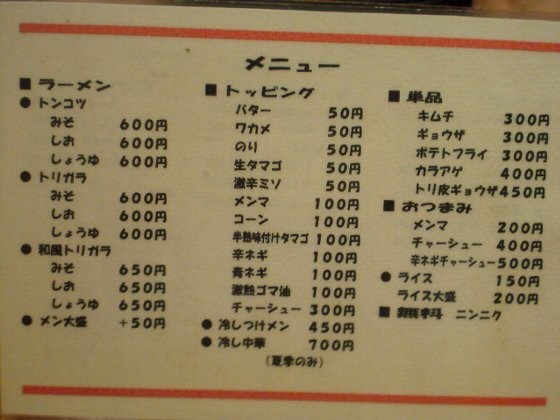 メニュー
■ ラーメン
● トンコツ
みそ 600円
しお 600円
しょうゆ 600円
● トリガラ
みそ 600円
しお 600円
しょうゆ 600円
● 和風トリガラ
みそ 650円
しお 650円
しょうゆ 650円
● メン大盛 +50円
■ トッピング
バター 50円
ワカメ 50円
のり 50円
生タマゴ 50円
激辛ミソ 50円
メンマ 100円
コーン 100円
半熟味付けタマゴ 100円
辛ネギ 100円
青ネギ 100円
激熱ゴマ油 100円
チャーシュー 300円
● 冷しつけメン 450円
● 冷し中華 700円
(夏季のみ)
■ 単品
キムチ 300円
ギョウザ 300円
ポテトフライ 300円
カラアゲ 400円
トリ皮ギョウザ 450円
■ おつまみ
メンマ 200円
チャーシュー 400円
辛ネギチャーシュー 500円
● ライス 150円
ライス大盛 200円
■ 無料 ニンニク